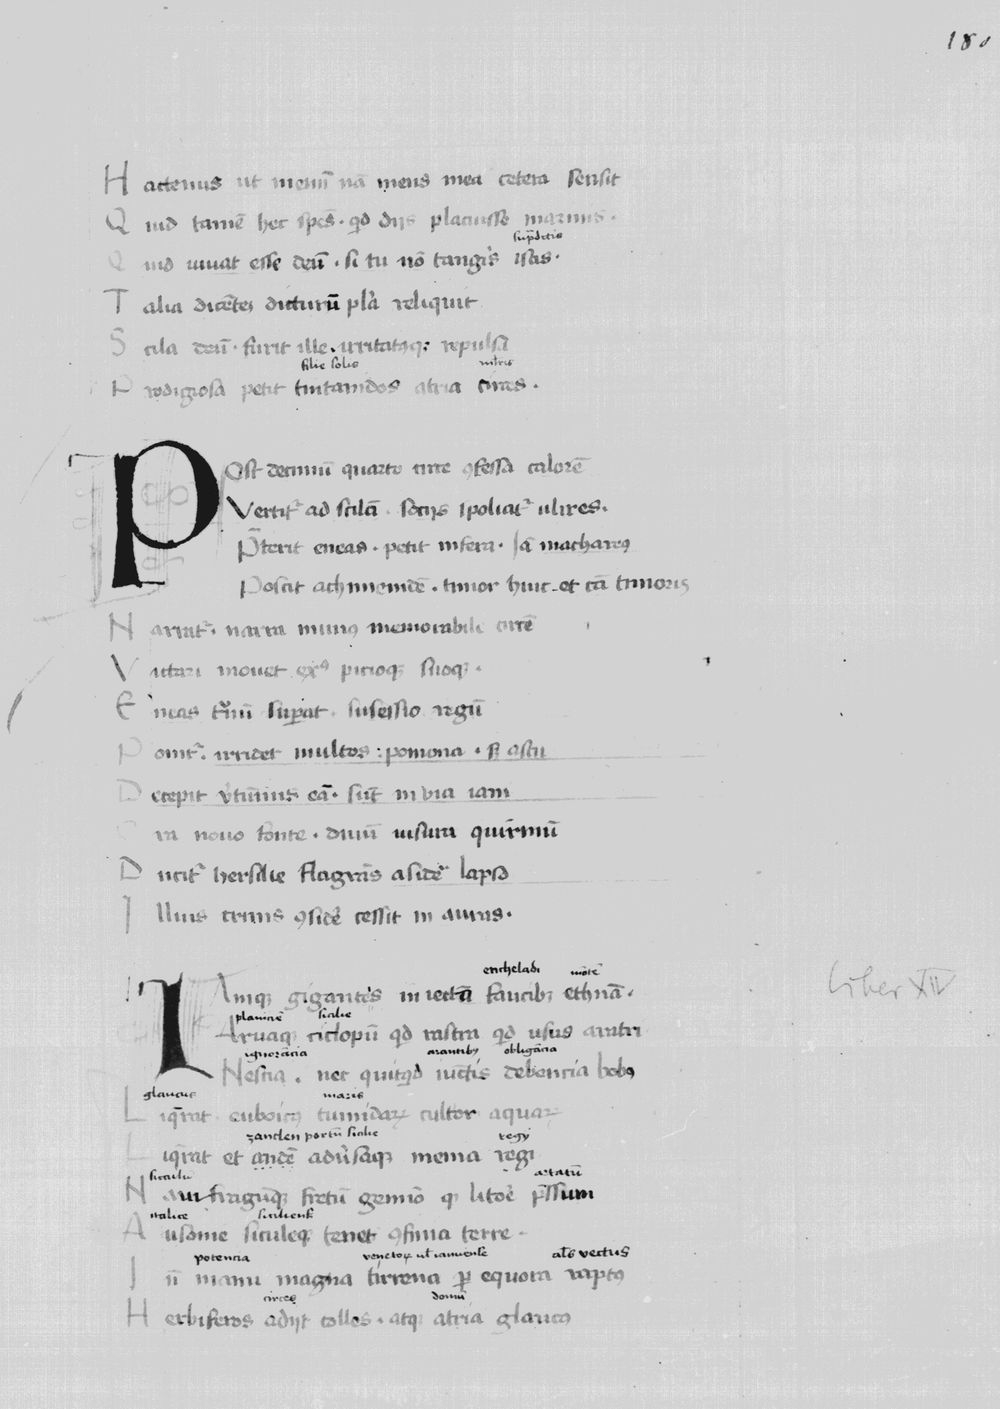 180
Hactenus ut meminī nā mens mea cetera sensit
Quid tamē hec spēs · qd diis placuisse marinis ·
sup̄dictis
Quid iuvat esse deū · si tu nō tangīs istis ·
Talia dicētē dicturū pla reliquit
Scila deū · furit ille · irritatusq; repulsa
filie solis
Prodigiosa petit tinitanidos atria circes ·
Post decimū quarto circe ꝯfessa calorē
Vertit᷒ ad scilā · sociis spoliat᷒ ulixes ·
P̄terit eneas · petit infera · Jā machareꝰ
Poscit achimenidē · timor huic et cā timoris
Narrat᷒ · narra munꝰ memorabile circē
Vitari mouet picioq; suoq; ·
Eneas t̄nū sup̄at · susessio regū
Ponit᷒ · irridet multos : pomona · astu
Decepit v̄tūnus eā · sunt in via iam
Cra nouo fonte · divū uisura quirinū
Ducit᷒ hersilie flagrās a sidē lapsa
Illius crinis ꝯsidē cessit in auras ·
encheladi mōtē
Iamq; gigantēs iniectā faucibꝫ ethnā ·
planiciē sicilie
Aruaq; ciclopū qd rastra qd usus aratri
ignorācia arantibꝫ obligācia
Nescia · nec quicq̄d iūctis debencia bobꝰ
glaucus maris
Liq̄rat euboicꝰ tumidaꝝ cultor aquaꝝ
zanclen portū sicilie regꝫ
Liq̄rat et ancdē adūsaq; menia regi
siculū artatū
Naufragūq; fretū gemīo q litoē p̄ssum
italice siciliensis
Ausonie siculeq; tenet ꝯfinia terre ·
potencia vectus
In̄ manu magna tirrena ꝑ equora vaptꝰ
circes domū
Herbiferos adiit colles · atq; atria glaucus
liber XIV